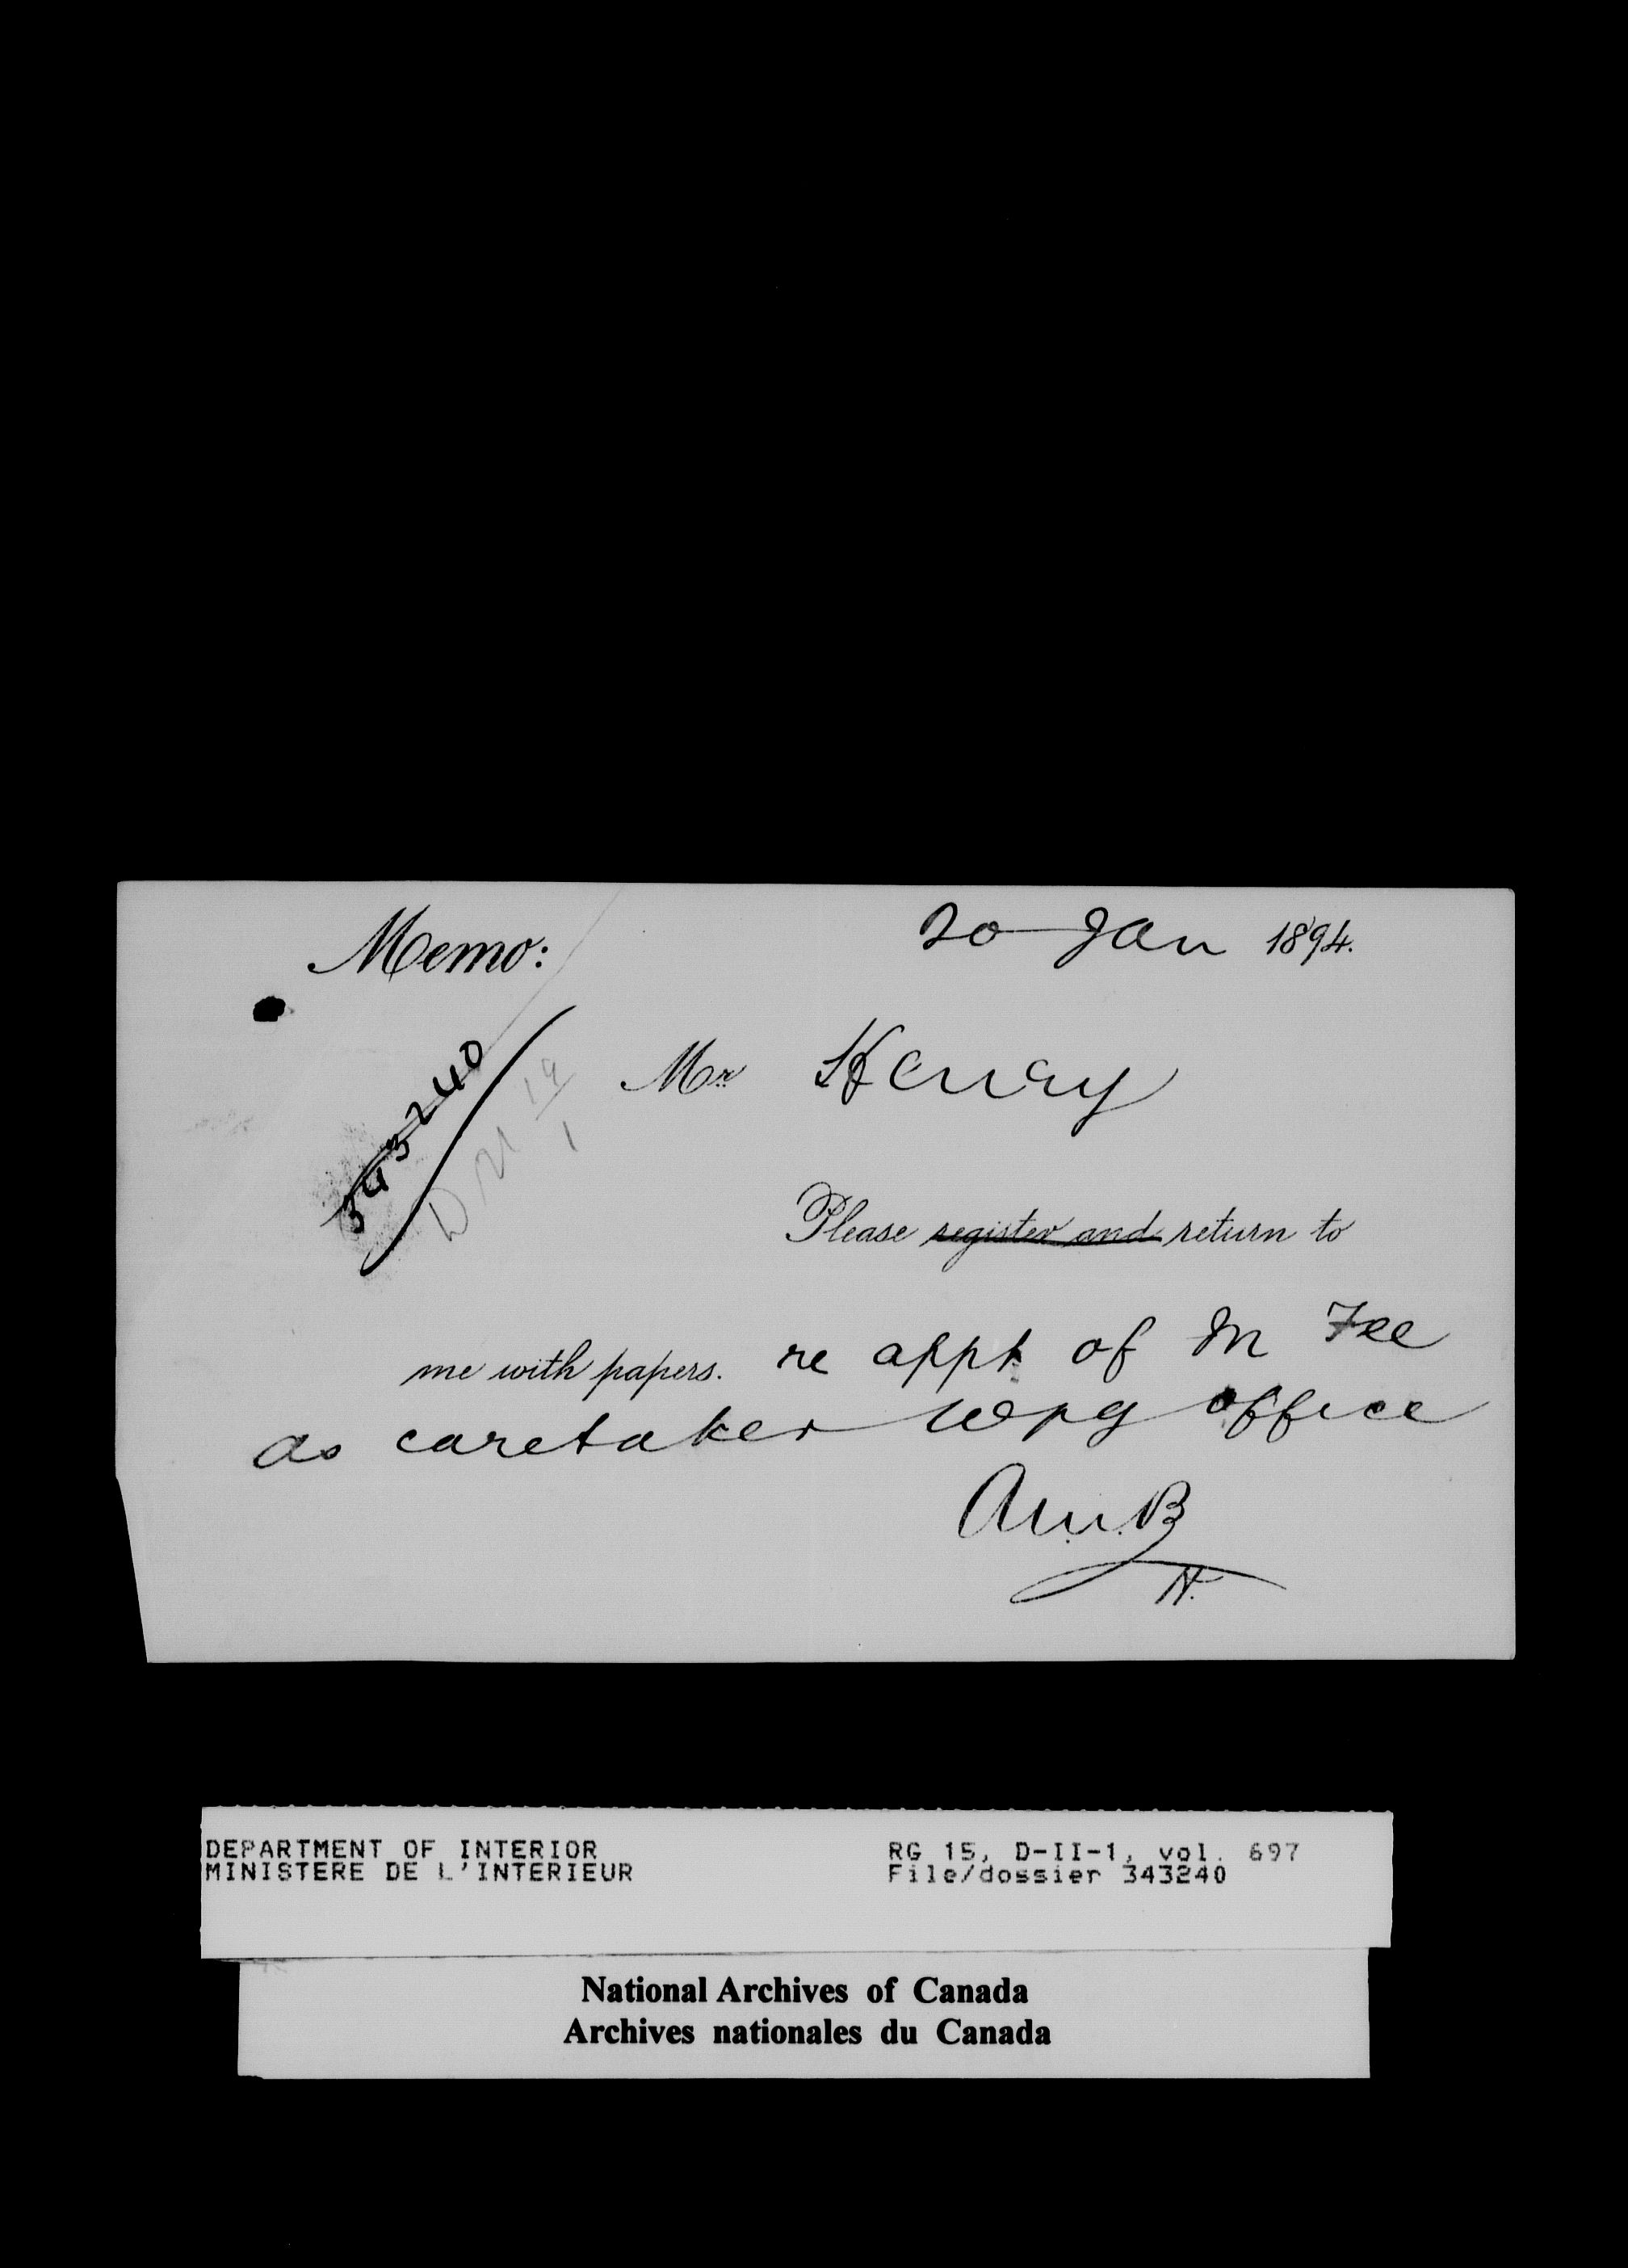 Memo:
20 Jan 1894.
343240
Mr Henry
Please register and return to
me with papers. re appt of M Fee
as caretaker Wpg office
A.M.B
H.
DEPARTMENT OF INTERIOR
MINISTERE DE L'INTERIEUR
RG 15, D-II-1, vol. 697
File/dossier 343240
National Archives of Canada
Archives nationales du Canada